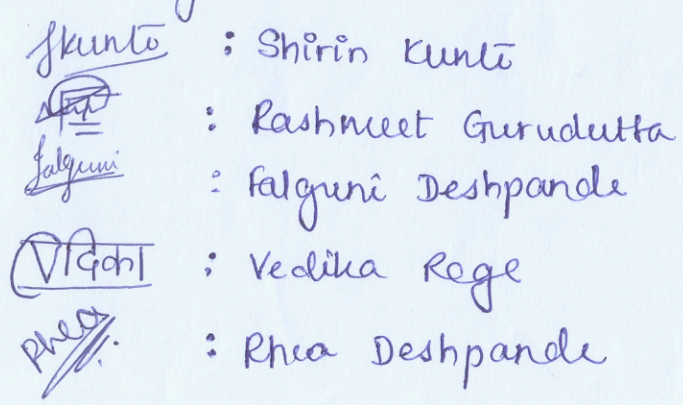 Skuntō : Shirin Kuntō
: Rashmeet Gurudutta
falguni : Falguni Deshpande
वेदिका : Vedika Rege
Rhea : Rhea Deshpande